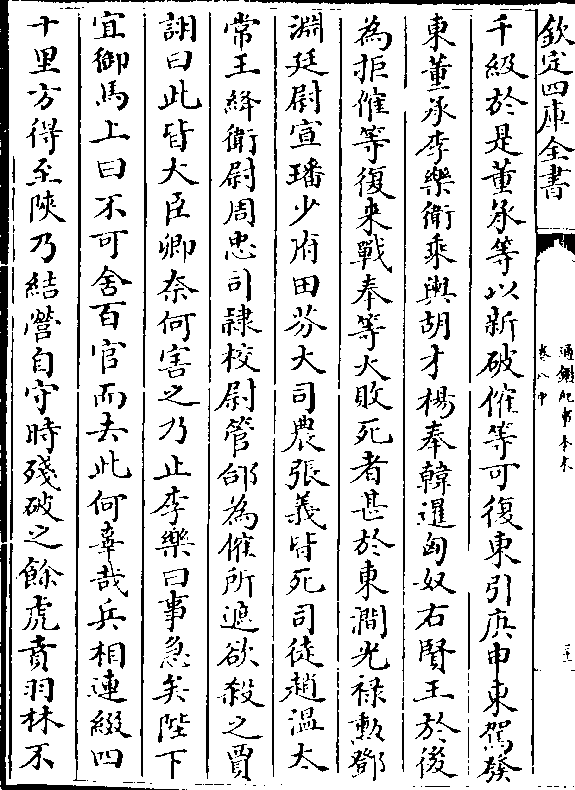 欽定四庫全書
通鑑紀事本末
卷八中
千級於是董承等以新破傕等可復東引庚申車駕發
東董承李樂衛乘輿胡才楊奉韓暹匈奴右賢王於後
為拒傕等復來戰奉等大敗死者甚於東澗光祿勲鄧
淵廷尉宣璠少府田芬大司農張義皆死司徒趙溫太
常王絳衛尉周忠司隸校尉管郃為傕所遮欲殺之賈
詡曰此皆大臣卿奈何害之乃止李樂曰事急矣陛下
宜御馬上曰不可舍百官而去此何辜哉兵相連綴四
十里方得至陜乃結營自守時殘破之餘虎賁羽林不